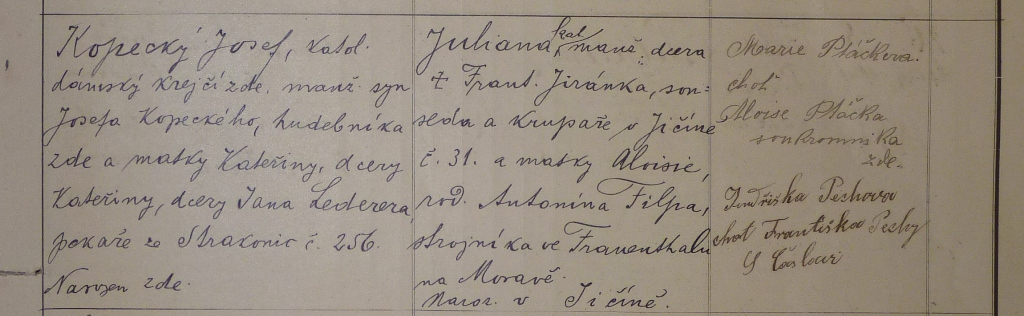 Kopecký Josef, katol.
dámský krejčí zde. manž. syn
Josefa Kopeckého, hudebníka
zde a matky Kateřiny, dcery
Kateřiny, dcery Jana Lederera,
pekaře ze Strakonic č. 256.
Narozen zde.
Juliana, kat. manž. dcera
† Frant. Jiránka, sou-
seda a krupaře v Jičíně
č. 31. a matky Aloisie,
roz. Antonína Filpa,
strojníka ve Frauenthalu
na Moravě.
Naroz. v Jičíně.
Marie Ptáčkova.
choť
Aloise Ptáčka
soukromníka
zde.
Jindřiška Pechova
choť Františka Pechy
Čáslavi